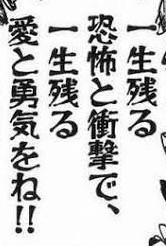 一生残る
恐怖と衝撃で、
一生残る
愛と勇気をね!!